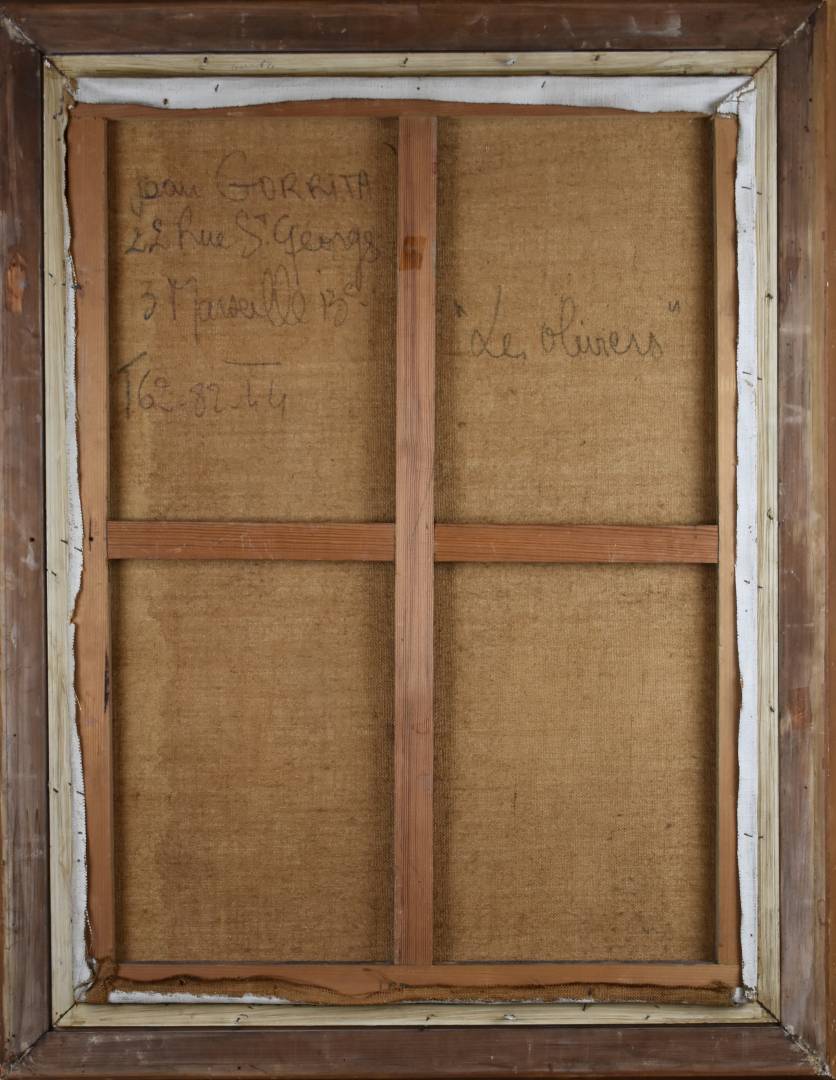 jean GORRITA
22 Rue St Georges
3 Marseille 13e
T 62-82-44
"Les oliviers"